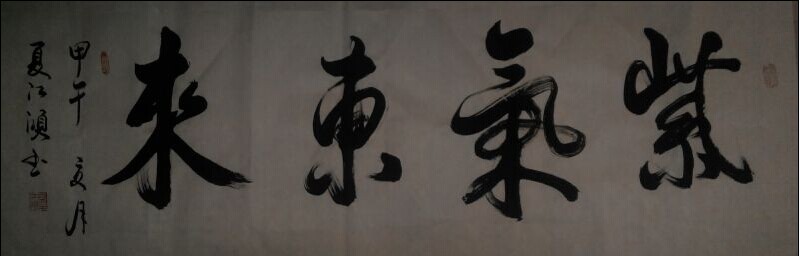 紫氣東來
甲午 夏月
夏江 书